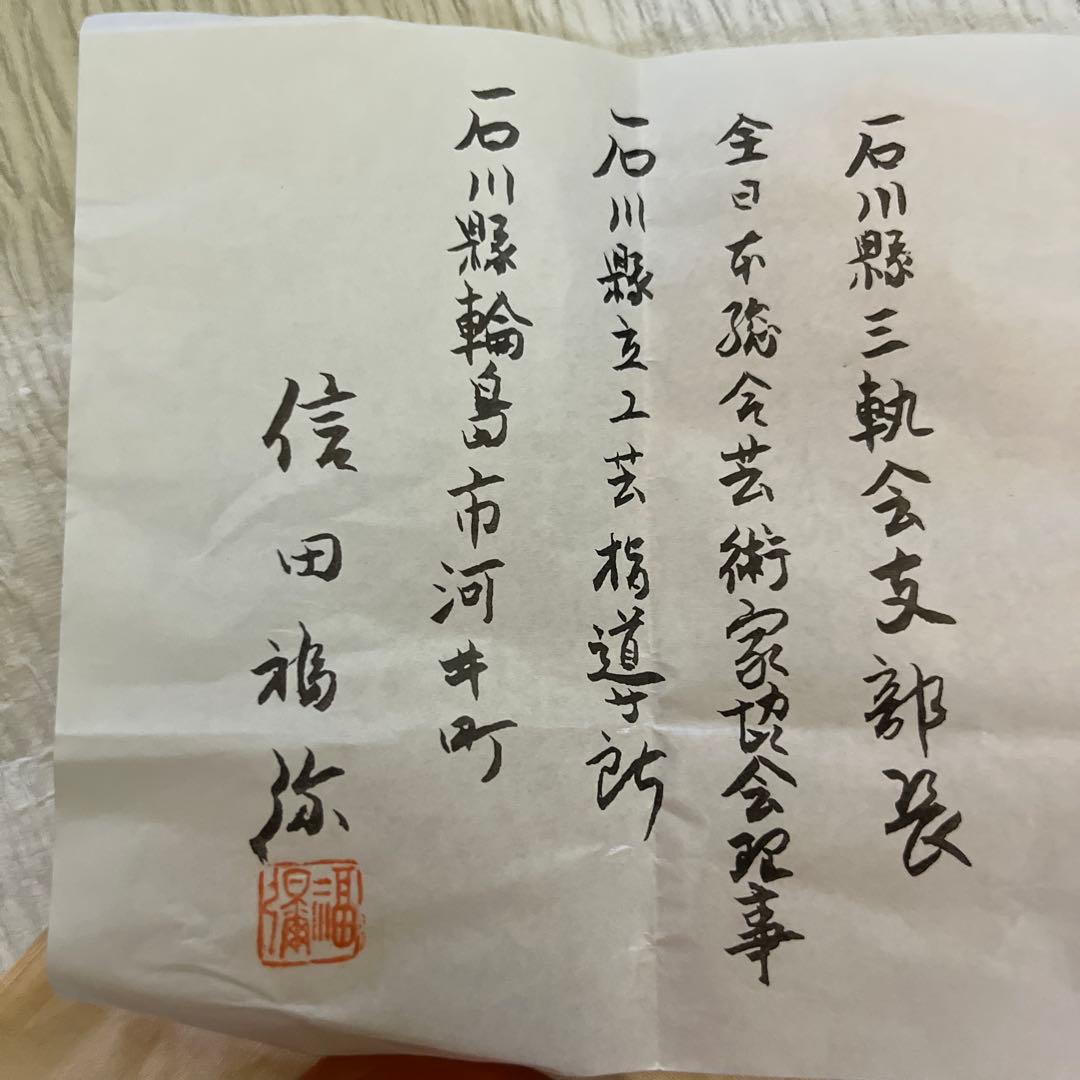 石川縣三軌会支部長
全日本総合芸術家協会理事
石川縣立工芸指導所
石川縣輪島市河井町
信田福弥
福彌